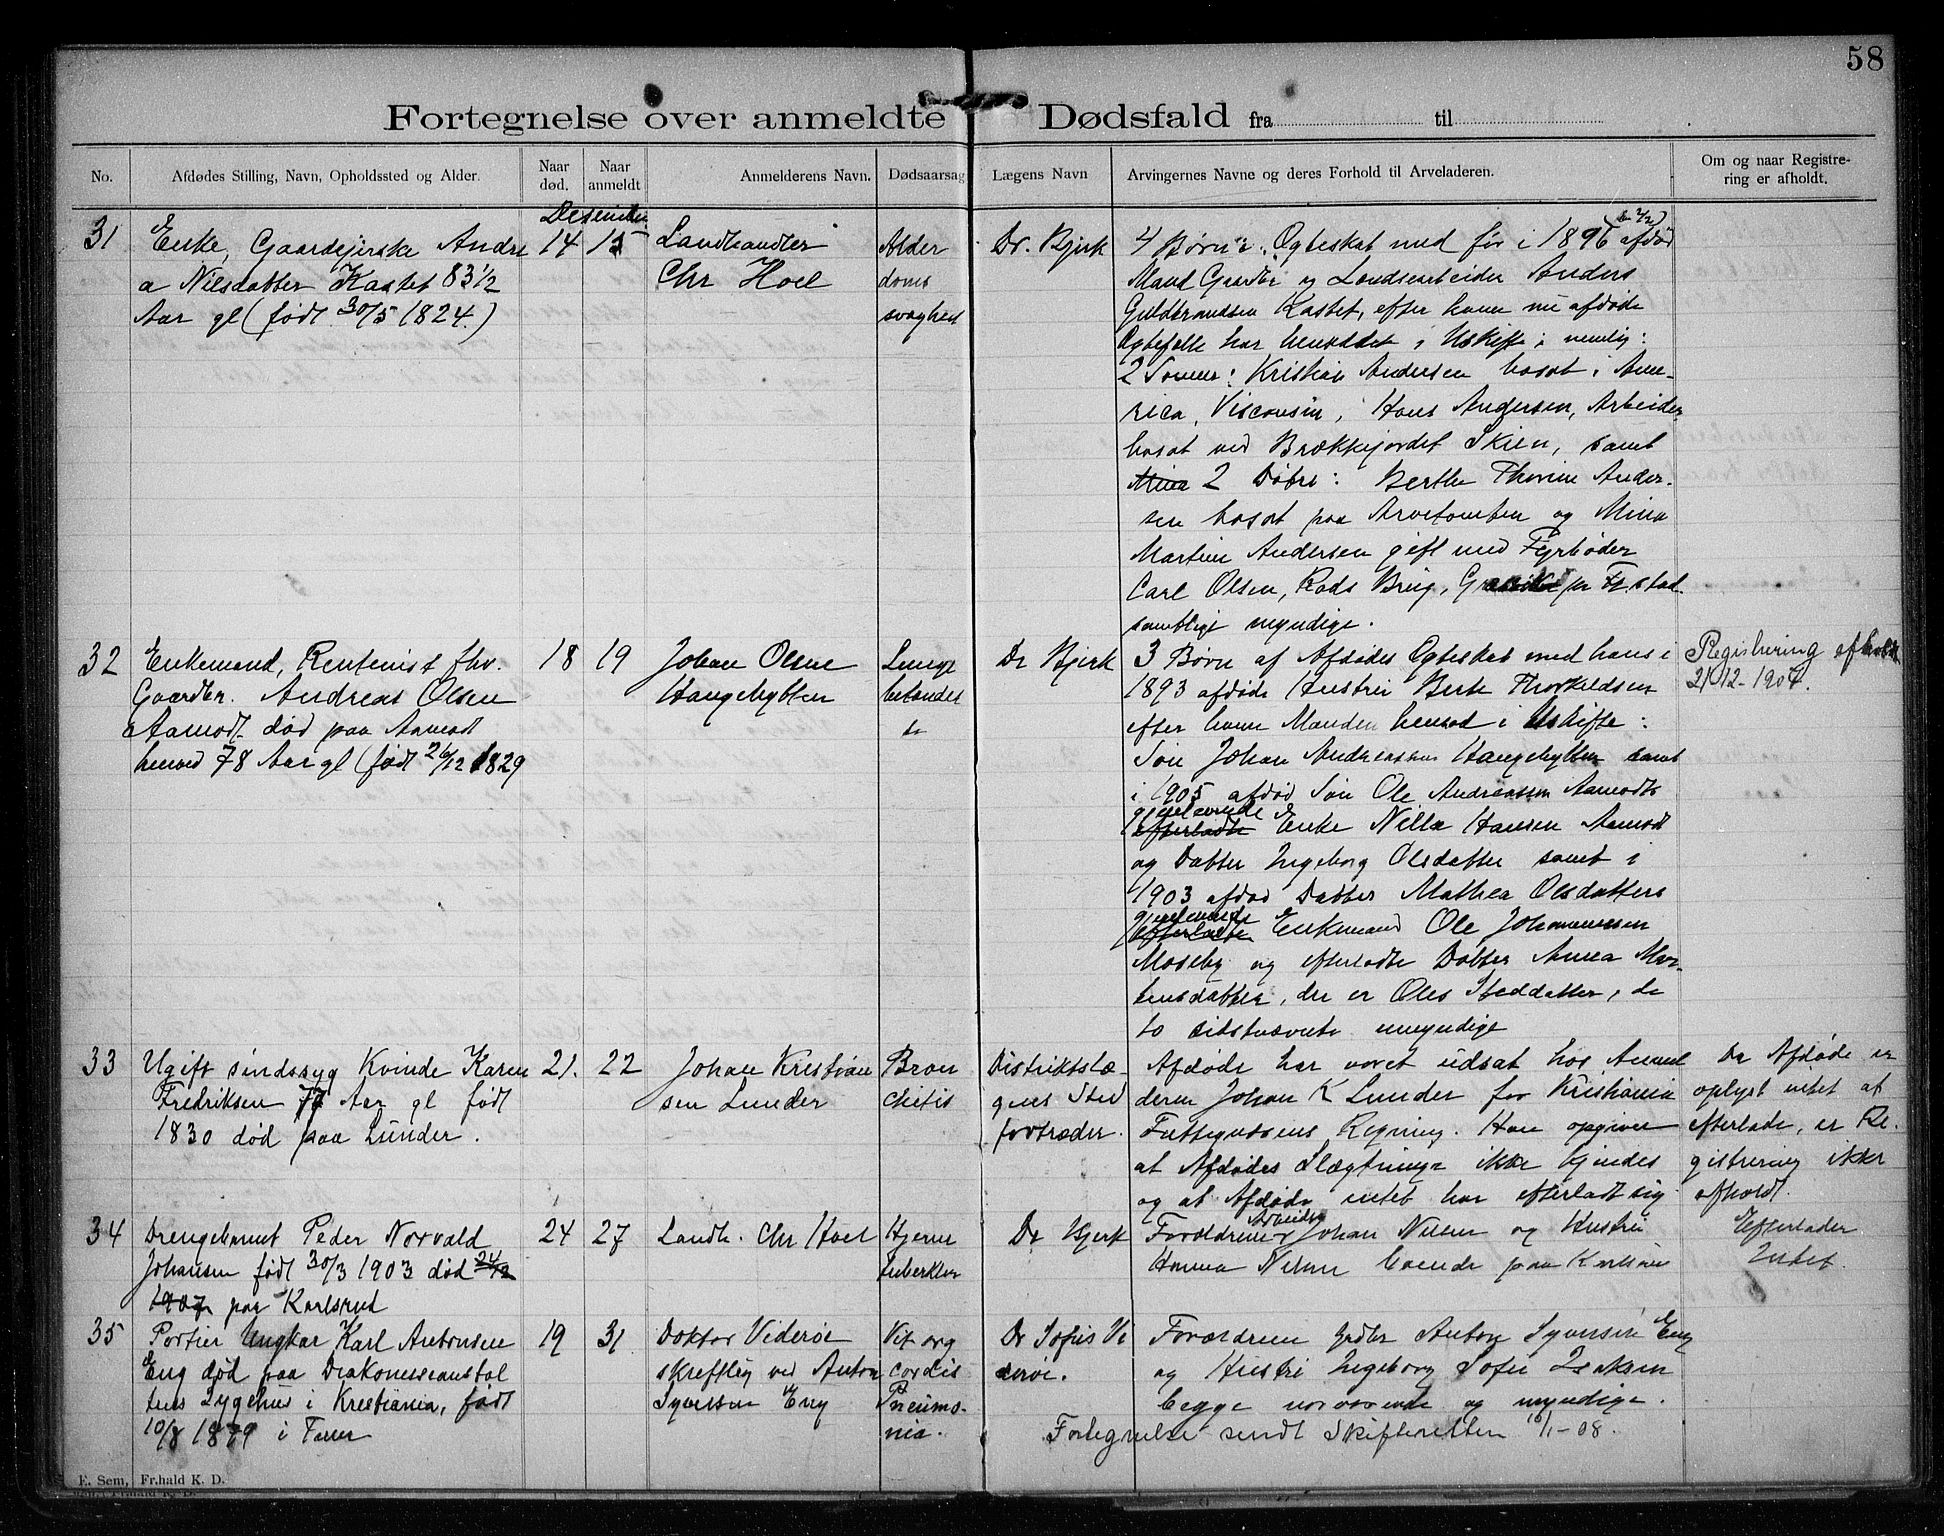 58
Fortegnelse over anmeldte Dødsfald fra til
No.
Afdødes Stilling, Navn, Opholdssted og Alder.
Naar død.
Naar anmeldt
Anmelderens Navn.
Dødsaarsag
Lægens Navn
Arvingernes Navne og deres Forhold til Arveladeren.
Om og naar Registrering er afholdt.
31
Enke, Gaardejerske Andre
a Nilsdatter Kastet 83 1/2
Aar gl (født 30/5 1824.)
Desember
14
15
Landhandler
Chr Hoel
Alder
doms
svaghed
Dr. Bjerk
4 Børn i Ogteskat med før i 1896 afdød
Mand Gaardbr og Landsarbeider Anders
Guldbrandsen Kastet, efter hvem nu afdøde
Ogtefelle har hensiddet i Uskifte, nemlig:
2 Sønner: Kristian Andersen bosat i Ame-
rica, Visconsin, Hans Andersen, Arbeider,
bosat ved Brækkejordet Skien, samt
Mina 2 Døtre: Berthe Thorine Ander-
sen bosat paa Arvetomten og Mina
Martine Andersen gift med Fyrbøder
Carl Olsen, Rods Brug, pr Fr.stad.
samtlige myndige.
32
Enkemand, Rentenist fhv.
Gaardbr. Andreas Olsen
Aamodt død paa Aamodt
henved 78 Aar gl (født 26/12 1829
18
19
Johan Olsen
Haugehytten
Lunge
betændel
se
Dr Bjerk
3 Børn af Afdødes Ogteskab med hans i
1893 afdøde Hustru Berte Thorkildsen
efter hvem Manden hensad i Uskifte:
Søn Johan Andreassen Haugehytten samt
i 1905 afdød Søn Ole Andreassen Aamodts
gjenlevende
efterladte Enke Nilla Hansen Aamodt
og Datter Ingeborg Olsdatter samt i
1903 afdød Datter Mathea Olsdatters
gjenlevende
efterladte Enkemand Ole Johannessen
Moseby og efterladte Datter Anna Mar-
tensdatter, der er Oles Steddatter, de
to sidstnævnte umyndige
Registrering afholdt
21/12-1907.
33
Ugift sindssyg Kvinde Karen
Fredriksen 77 Aar gl født
1830 død paa Lunder.
21.
22
Johan Kristian
sen Lunder
Bron
chitis
Distriktslæ-
gens Sted
fortræder.
Afdøde har været udsat hos Anmel
deren Johan K Lunder for Kristiania
Fattigvæsens Regning. Han opgiver
at Afdødes Slægtninge ikke kjendes
og at Afdøde intet har efterladt sig
Da Afdøde er
oplyst intet at
efterlade, er Re-
gistrering ikke
afholdt.
34
Drengebarnet Peder Norvald
Johansen født 30/3 1903 død 24/12
1907 paa Karlsrud
24
27
Landh. Chr Hoel
Hjerne
tuberklar
Dr Bjerk
Arbeider
Forældrene Johan Nilsen og Hustru
Hanna Nilsen boende paa
Efterlader
Intet.
35
Portier Ungkar Karl Antonsen
Eng død paa Diakonisseanstal
tens Sygehus i Kristiania, født
10/8 1879 i
19
31
Doktor Viderøe
skreftlig ved Anton
Syversen Eng
Vit org
cordis
Pneumo-
nia.
Dr Sofus Vi
derøe.
Forældrene Grdbr Anton Syversen Eng
og Hustru Ingeborg Sofie Isaksen
begge nærværende og myndige.
Fortegnelse sendt Skifteretten 10/1-08.
E. Sem, Fr.hald K. D.